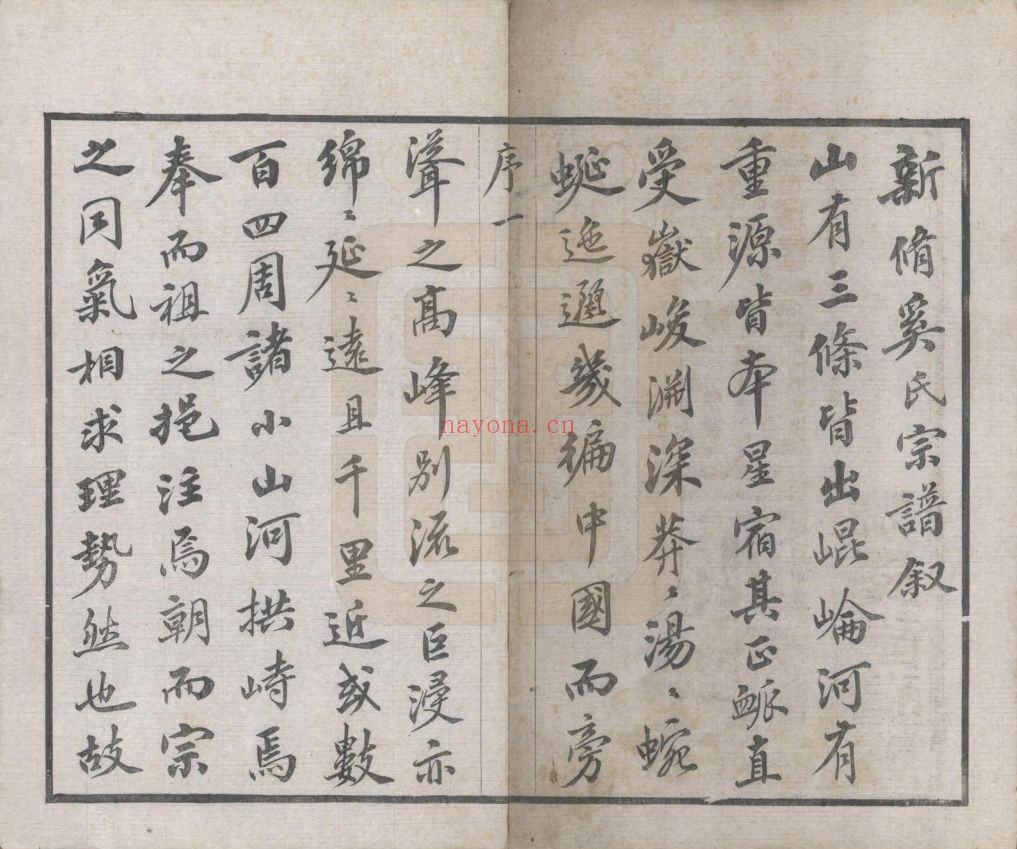 新脩奚氏宗譜叙
山有三條皆出崐崘河有
重源皆本星宿其正脈直
受嶽峻渊深莽〻湯〻蜿
蜒迤邐幾徧中國而旁
序一
聳之高峰別流之巨浸亦
綿〻延〻遠且千里近或數
百四周諸小山河拱峙焉
奉而祖之挹注焉朝而宗
之同氣相求理勢然也故
nayona.cn